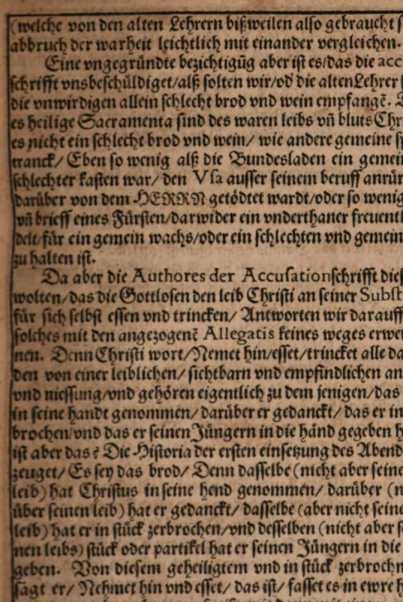 (welche von den alten Lehrern bißweilen also gebraucht s
abbruch der warheit leichtlich mit einander vergleichen.
Eine vngegründte bezichtigūg aber ist es/das die acc
schrifft vnsbeschüldiget/alß solten wir/oď die altenLehrer
die vnwirdigen allein schlecht brod vnd wein empfangē.
es heilige Sacramenta sind des waren leibs vn̄ bluts Chr
es nicht ein schlecht brod vnd wein/ wie andere gemeine sp
tranck/ Eben so wenig alß die Bundesladen ein gemein
schlechter kasten war/ den Vsa ausser seinem beruff anrür
darüber von dem HERRN getödtet wardt/oder so wenig
vn̄ brieff eines Fürsten/darwider ein vnderthaner freuent
delt/für ein gemein wachs/oder ein schlechten vnd gemein
zu halten ist.
Da aber die Authores der Accusationschrifft dies
wolten/das die Gottlosen den leib Christi an seiner Subst
für sich selbst essen vnd trincken/ Antworten wir darauff
solches mit den angezogenē Allegatis keines weges erwe
nen. Denn Christi wort/Nemet hin/esset/trincket alle da
den von einer leiblichen/ sichtbarn vnd empfindlichen an
vnd niessung/vnd gehören eigentlich zu dem jenigen/das
in seine handt genommen/ darüber er gedanckt/ das er in
brochen/vnd das er seinen Jüngern in die händ gegeben h
ist aber das? Die Historia der ersten einsetzung des Abend
zeuget/ Es sey das brod/ Denn dasselbe (nicht aber seine
leib) hat Christus in seine hend genommen/ darüber (n
über seinen leib) hat er gedanckt/ dasselbe (aber nicht seine
leib) hat er in stück zerbrochen/vnd desselben (nicht aber s
nen leibs) stück oder partikel hat er seinen Jüngern in die
geben. Von diesem geheiligtem vnd in stück zerbrochn
sagt er/ Nehmet hin vnd esset/ das ist/ fasset es in ewre h